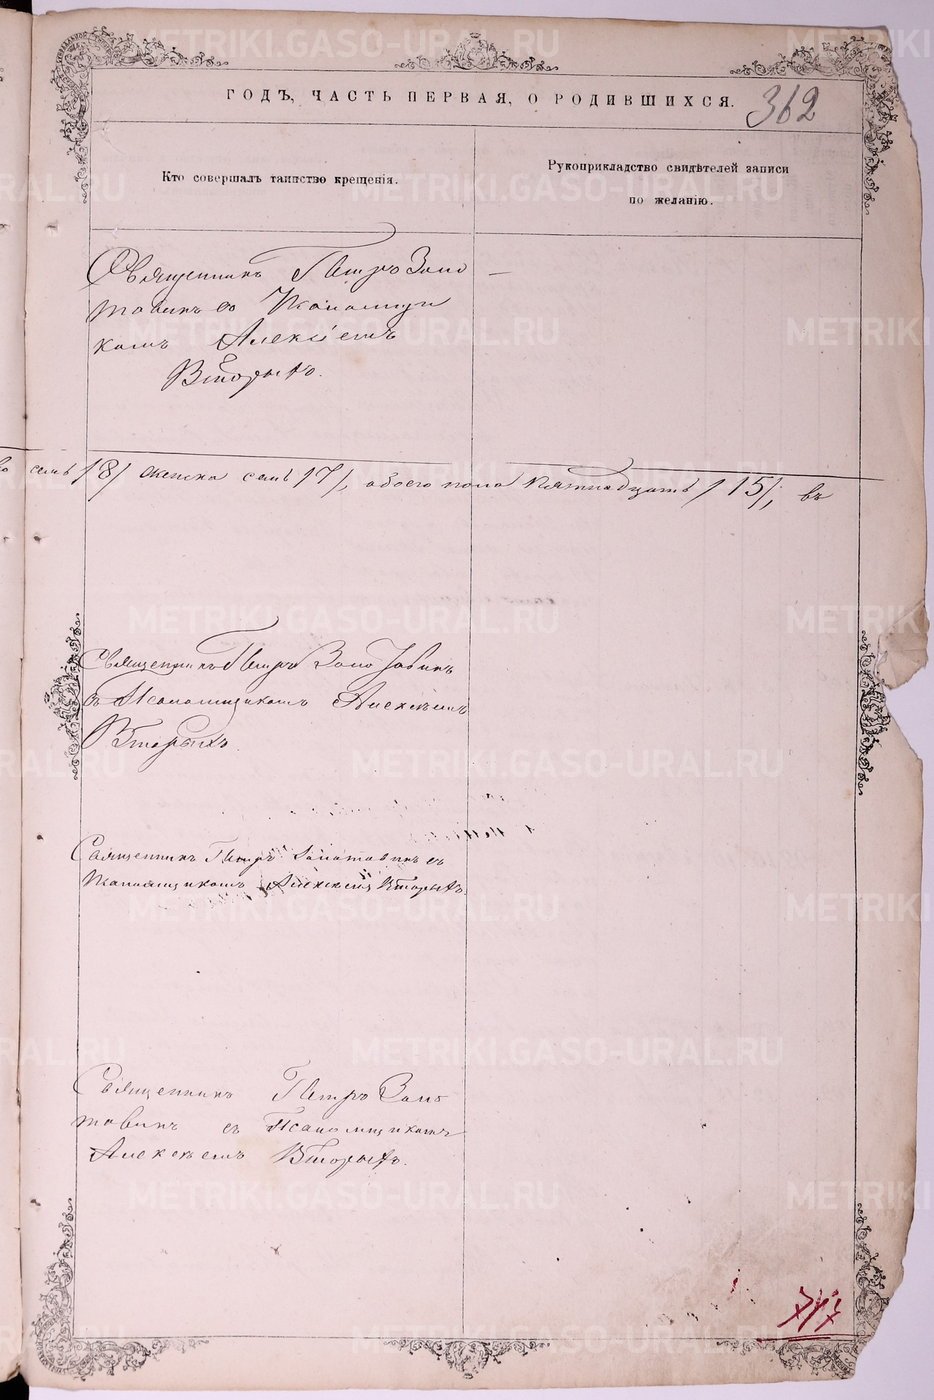 ГОДЪ, ЧАСТЬ ПЕРВАЯ, О РОДИВШИХСЯ.
362
Кто совершалъ таинство крещенія.
Рукоприкладство свидѣтелей записи
по желанію.
Священникъ Петръ Золо
товинъ съ Псаломщи
комъ Алексіемъ
Вторыхъ.
семь /8/ женска семь /7/, обоего пола пятнадцать /15/, въ
Священникъ Петръ Золотовинъ
съ Псаломщикомъ Алексѣемъ
Вторыхъ.
Священникъ Петръ Золотовинъ съ
Псаломщикомъ Алексѣемъ Вторыхъ
Священникъ Петръ Золо
товинъ съ Псаломщикомъ
Алексѣемъ Вторыхъ.
METRIKI.GASO-URAL.RU